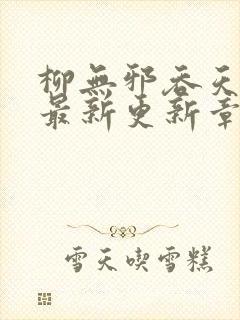 柳無邪吞天
最新更新章
雪天喫雪糕